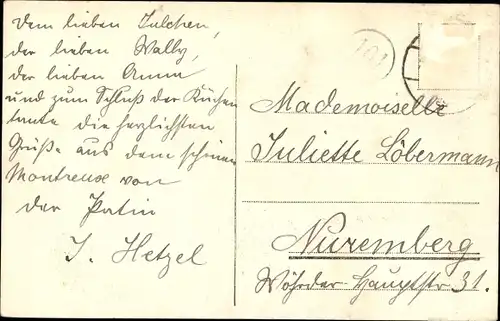 Dem lieben Julchen,
der lieben Wally,
der lieben Anna
und zum Schluß der Küchen
tante die herzlichsten
Grüße aus dem schönen
Montreux von
der Patin
J. Hetzel
101
Mademoiselle
Juliette Löbermann
Nuremberg
Wöhrder-Hauptstr 31.